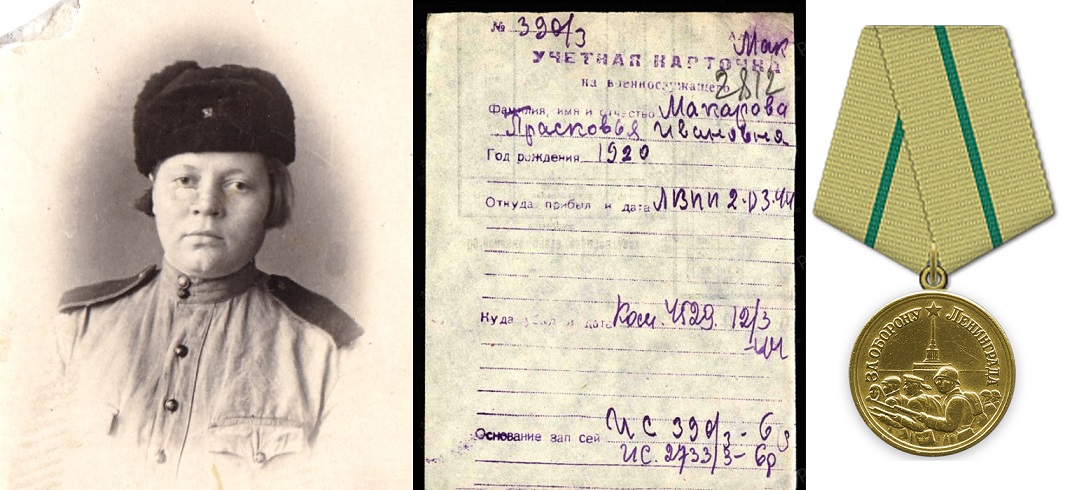 № 390/3
Мак
УЧЕТНАЯ КАРТОЧКА
на военнослужащего
2812
Фамилия, имя и отчество Макарова
Прасковья Ивановна
Год рождения 1920
Откуда прибыл и дата ЛВПП 2.03.44
Куда убыл и дата Ком. 4529. 12/3
-44
Основание зап сей ИС 390/3-
ИС. 2733/3- бр
ЗА ОБОРОНУ ЛЕНИНГРАДА